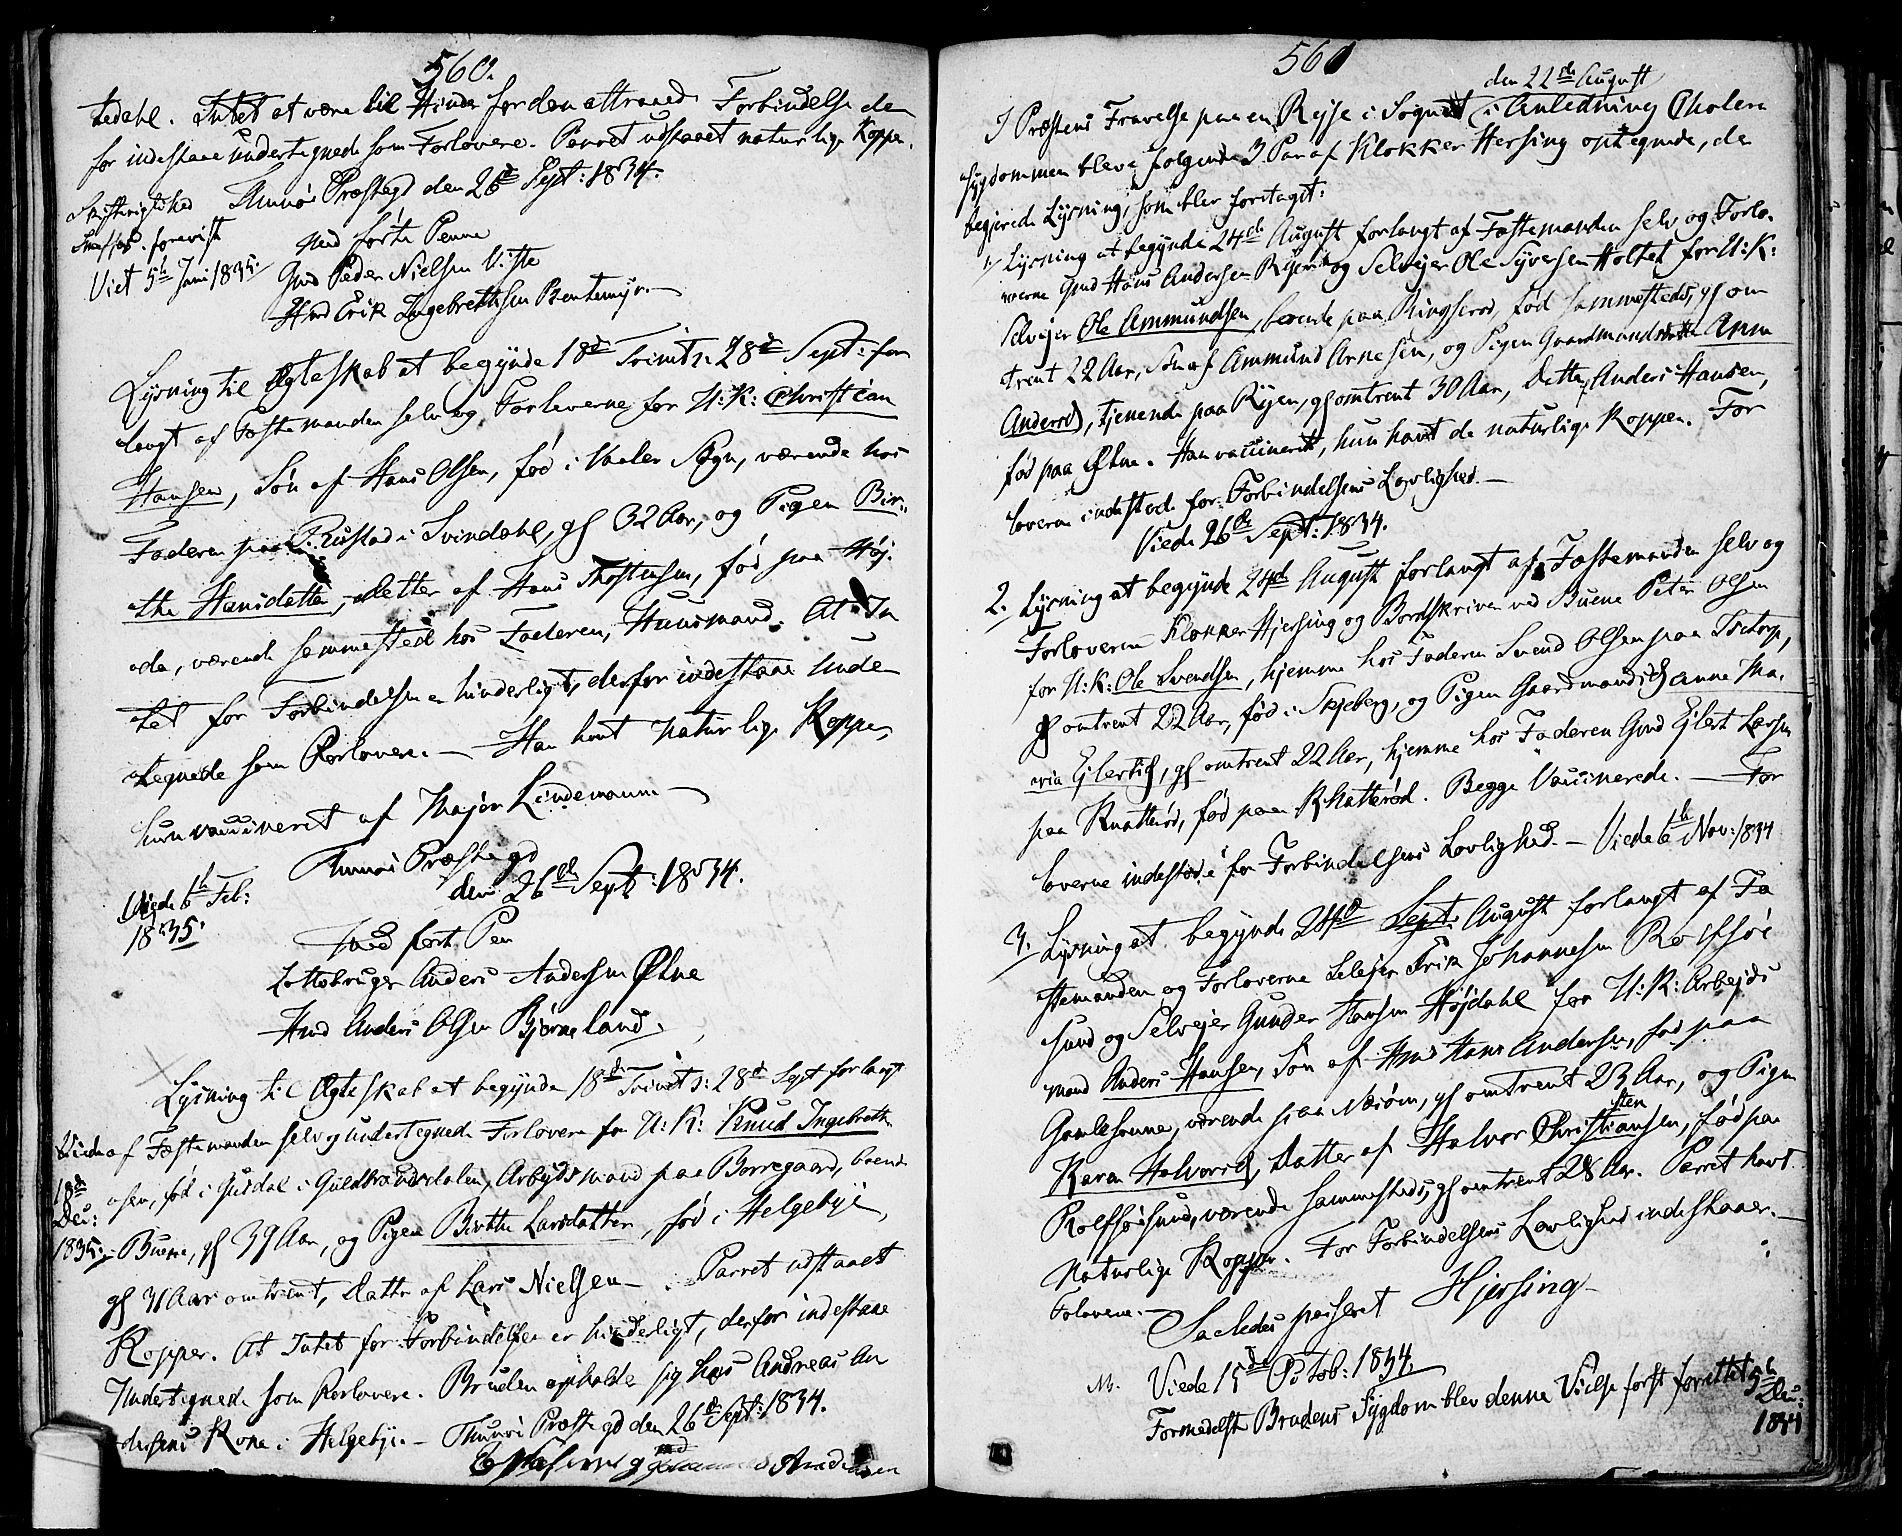 560.
tedahl. Intet at være til Hinder for den attraaede Forbindelse der
for indestaae undertegnede som Forlovere. Parret udstaaet naturlige Kopper.
Thunøe Præstegd den 26de Sept: 1834.
Skifterigtighed
forevist
Viet 5th Juni 1835.
med førte Penne
Gmd Peder Nielsen Viste
Hmd Erik Ingebrethsen Bentemyr.
Lysning til Ægteskab at begynde 18de Trinit: 28de Sept: for
langt af Fæstemanden selv og Forloverne for U: K: Christian
Hansen, Søn af Hans Olsen, fød i Vaaler Sogn, værende hos
Faderen paa Rustad i Svindahl, gl 32 Aar, og Pigen Bir-
the Hansdatter, Datter af Hans Thostensen, fød paa Høj-
ode, værende sammested hos Faderen, Huusmand. At In
tet for Forbindelsen er hinderligt, derfor indestaae Unde
tegnede som Forlovere. — Han havt naturlige Kopper,
hun vaccineret af Major Lindemann —
Thunøe Præstegd
den 26de Sept: 1834.
Viede 6th Feb:
1835.
med ført Pen
Lottebruger Anders Andersen Østne
Hmd Anders Olsen Bjørneland.
Lysning til Ægteskab at begynde 18de Trinit: 28de Sept forlangt
af Fæstemanden selv og undertegnede Forlovere for U: K: Knud Ingebreth-
Viede
18de
Dec:
1835.
osen, fød i Gusdal i Guldbrandsdalen, Arbejdsmand paa Borregaard, boende
Buene, gl 39 Aar, og Pigen Birthe Larsdatter, fød i Helgebye,
gl 31 Aar omtrent, Datter af Lars Nielsen — Parret udstaaet
Kopper. At Intet for Forbindelsen er hinderligt, derfor indestaae
Undertegnede som Forlovere. Bruden opholder sig hos Andreas An
dersens Kone i Helgebye. — Thunøe Præstegd den 26de Sept: 1834.
Andersen
561
den 22de August
I Præstens Fravelse paa en Rejse i Sognet i Anledning Cholera
sygdommen bleve følgende 3 Par af Klokker Hersing optegnede, de
begjerede Lysning, som blev foretaget:
1/ Lysning at begynde 24de August forlangt af Fæstemanden selv og Forlo-
verne Gmd Hans Andersen Ryen og Selvejer Ole Syversen Holtet for U: K:
Selvejer Ole Ammundsen, boende paa Ringserød, fød sammesteds, gl om
trent 22 Aar, Søn af Ammund Arnesen, og Pigen Gaardmands Ann
Andersd, tjenende paa Ryen, gl omtrent 30 Aar, Datter Anders Hansen,
fød paa Østne. Han vaccineret, hun havt de naturlige Kopper. For
loverne indestod for Forbindelsens Lovlighed. —
Viede 26de Sept: 1834.
2. Lysning at begynde 24de August forlangt af Fæstemanden selv og
Forloverne Klokker Hjersing og Bordskriver ved Buene Peter Olsen
for U: K: Ole Svendsen, hjemme hos Faderen Svend Olsen paa Torp,
gl omtrent 22 Aar, fød i Skjeberg, og Pigen Gaardmandsd Anne Ma-
ria Ejlertsd, gl omtrent 22 Aar, hjemme hos Faderen Gmd Ejlert Larsen
paa Knatterød, fød paa Knatterød. Begge Vaccinerede. — For
loverne indestode for Forbindelsens Lovlighed. — Viede 6th Nov: 1834
3. Lysning at begynde 24de Sept. August forlangt af Fæ
stemanden og Forloverne Selejer Erik Johannesen Rolfsøe
sund og Selvejer Gunder Hansen Højdahl for U: K: Arbejds
mand Anders Hansen, Søn af Hmd Hans Andersen, fød paa
Gamlesonne, værende paa Næsøen, gl omtrent 23 Aar, og Pigen
Karen Halvorsd, Datter af Halvor Christiansen, fød paa
sten
Rolfsøesund, værende sammesteds, gl omtrent 28 Aar. Parret havt
Naturlige Kopper. For Forbindelsens Lovlighed indestaaer. —
Folovene. —
Saaledes passeret Hjersing
Viede 15de Octob: 1834.
Formedelst Brudens Sygdom blev denne Vielse først forrettet 5th
Dec:
1834